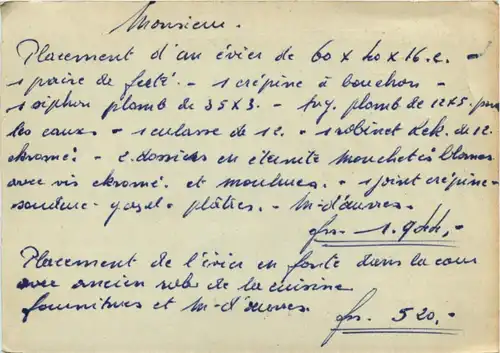 Monsieur.
Placement d'un évier de 60 x 40 x 16 c. -
1 paire de ferté. - 1 crépine à bouchon -
1 siphon plomb de 35 x 3. - tuy. plomb de 12 x 5. pour
les eaux. - 1 culasse de 12. - 1 robinet Kek. de 12.
chromé. - 2 dossiers en éternite mouchetés blancs
avec vis chromé. et moulures. - 1 joint crépine -
soudure - gazel - plâtres. - M-d'œuvres. -
frs - 1.944,-
Placement de l'évier en fonte dans la cour
avec ancien rob. de la cuisine
fournitures et M-d'œuvres
frs. 520,-